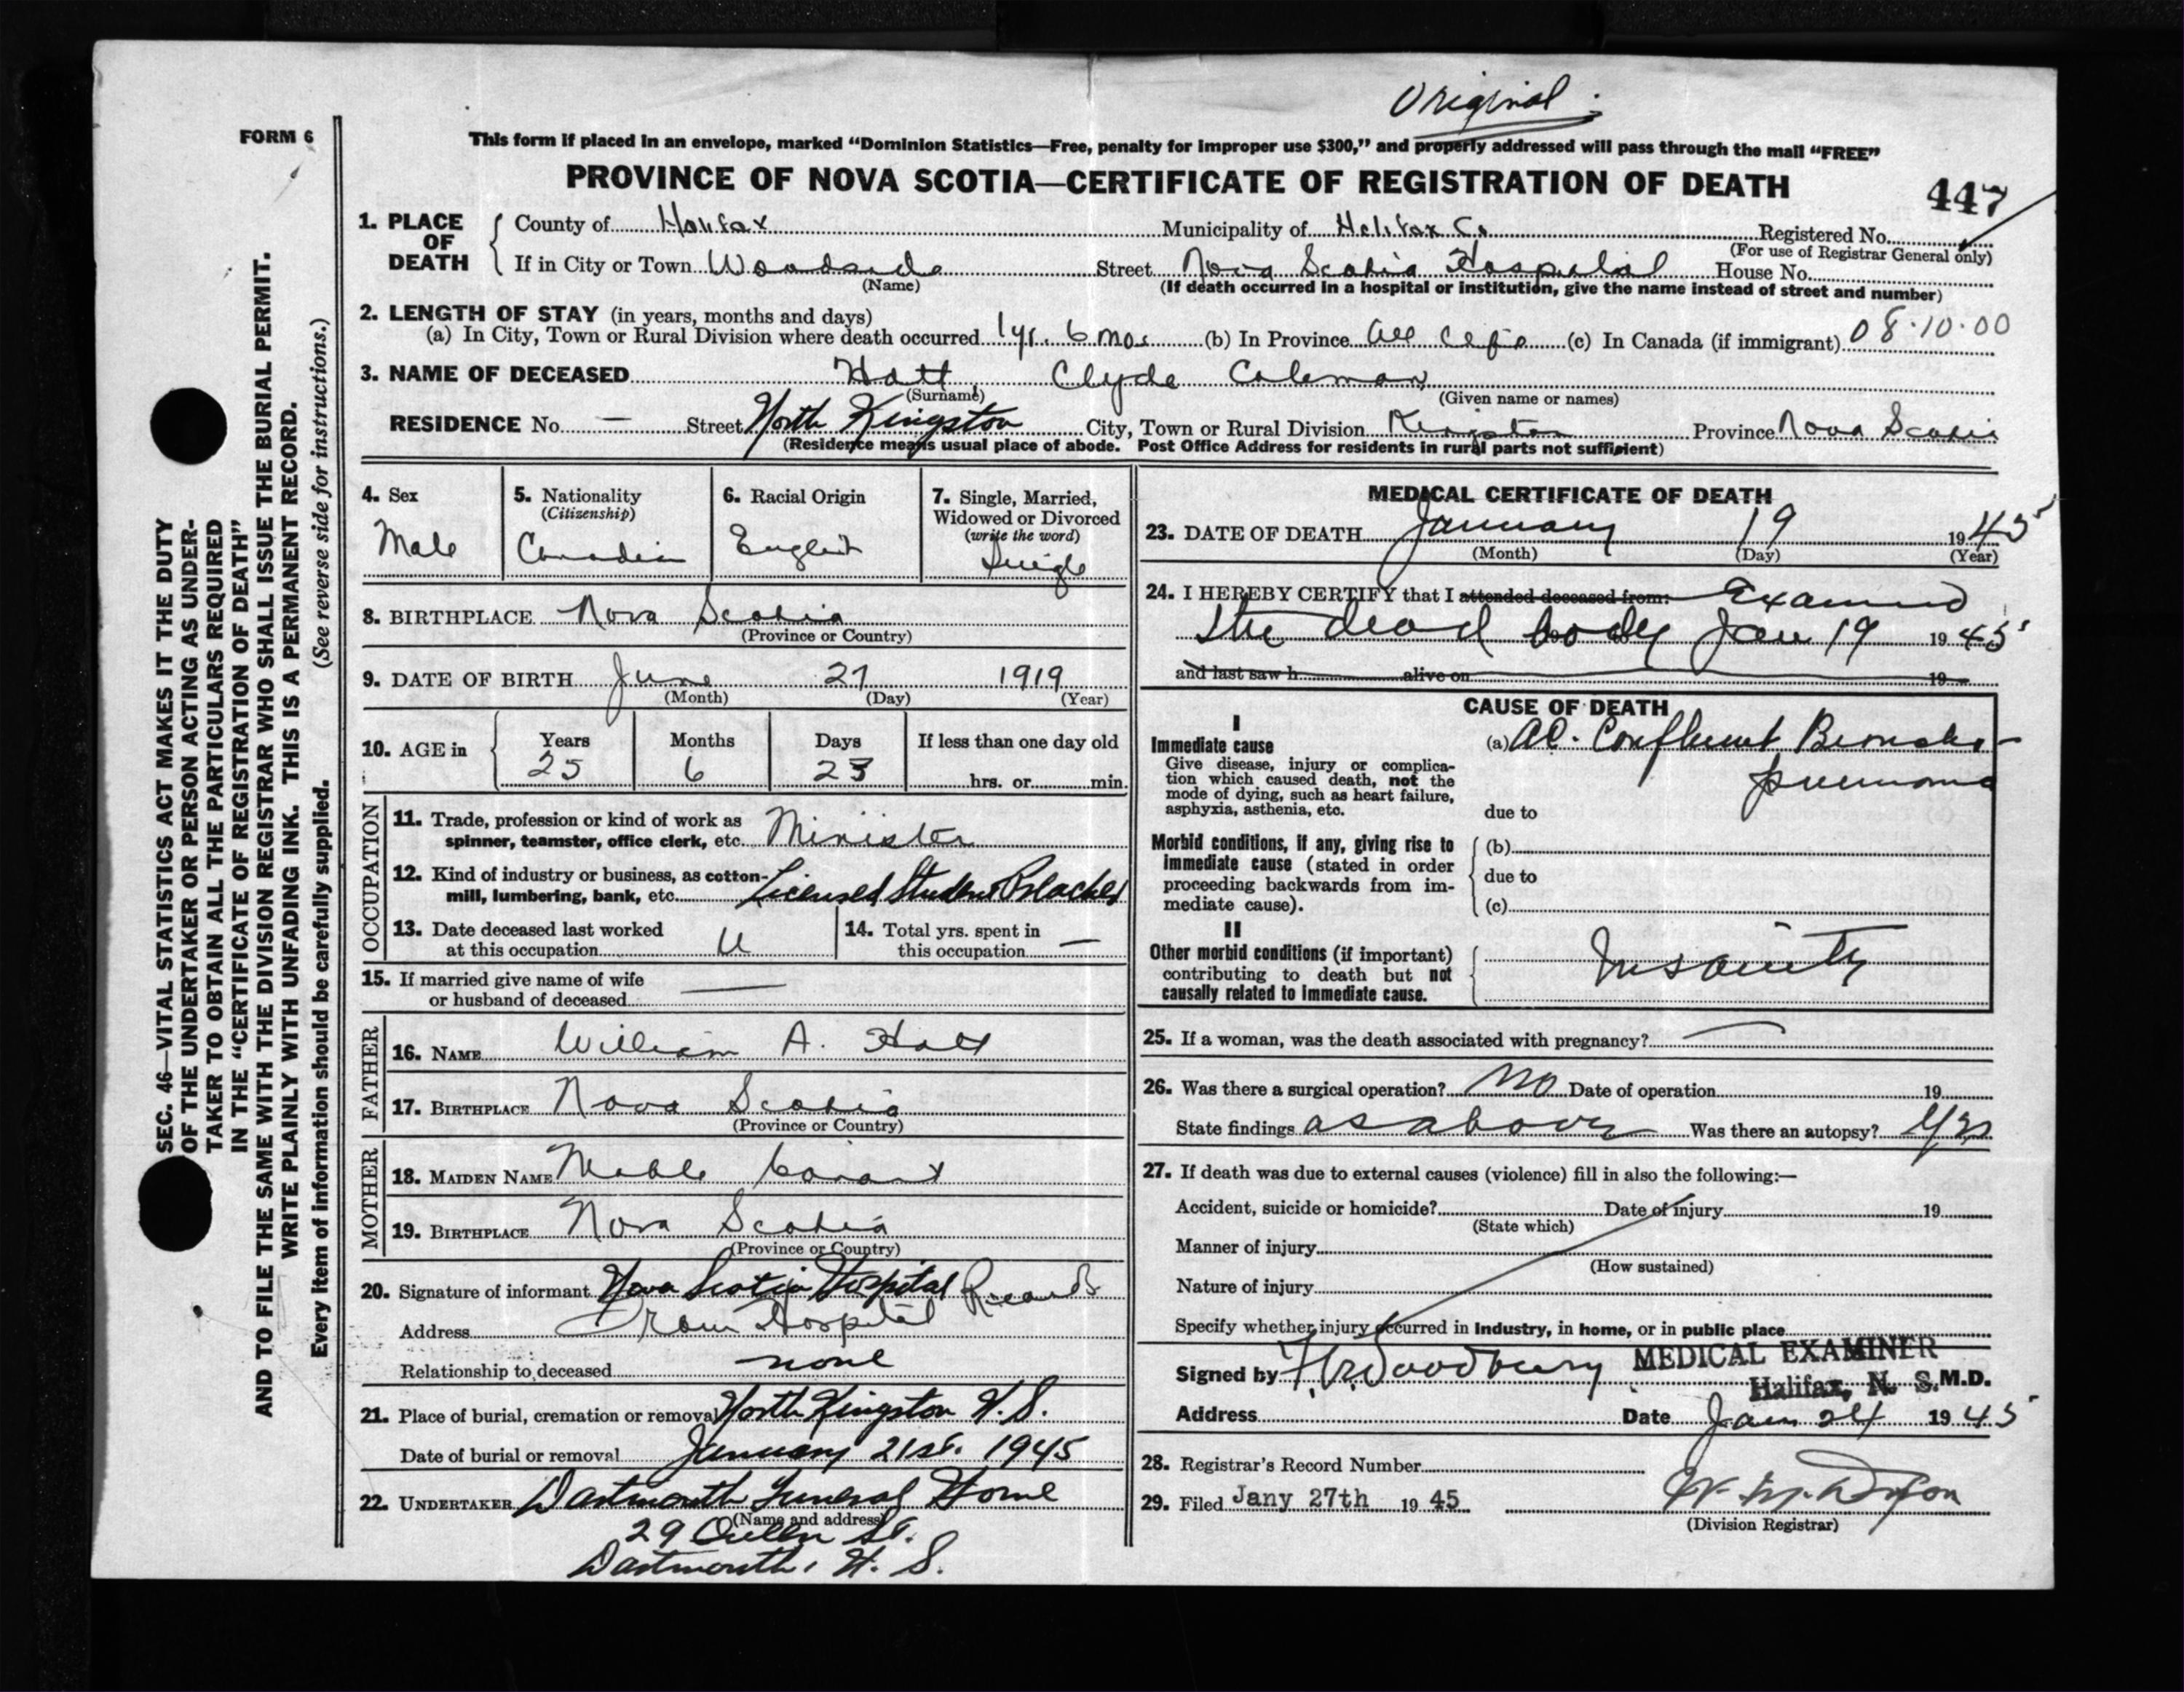 Original
FORM 6
This form if placed in an envelope, marked "Dominion Statistics—Free, penalty for improper use $300," and properly addressed will pass through the mail "FREE"
PROVINCE OF NOVA SCOTIA—CERTIFICATE OF REGISTRATION OF DEATH
447
1. PLACE OF DEATH
County of Halifax Municipality of Halifax Co Registered No.
(For use of Registrar General only)
If in City or Town Woodside Street Nova Scotia Hospital House No.
(Name) (If death occurred in a hospital or institution, give the name instead of street and number)
2. LENGTH OF STAY (in years, months and days)
(a) In City, Town or Rural Division where death occurred 1 yr. 6 mos (b) In Province All life (c) In Canada (if immigrant) 08·10·00
3. NAME OF DECEASED Hatt, Clyde Coleman
(Surname) (Given name or names)
RESIDENCE No. — Street North Kingston City, Town or Rural Division Kingston Province Nova Scotia
(Residence means usual place of abode. Post Office Address for residents in rural parts not sufficient)
4. Sex
Male
5. Nationality
(Citizenship)
Canadian
6. Racial Origin
English
7. Single, Married,
Widowed or Divorced
(write the word)
Single
8. BIRTHPLACE Nova Scotia
(Province or Country)
9. DATE OF BIRTH June 27 1919
(Month) (Day) (Year)
10. AGE in
Years Months Days If less than one day old
25 6 23 hrs. or min.
OCCUPATION
11. Trade, profession or kind of work as
spinner, teamster, office clerk, etc. Minister
12. Kind of industry or business, as cotton-
mill, lumbering, bank, etc. Licensed Student Preacher
13. Date deceased last worked
at this occupation U
14. Total yrs. spent in
this occupation —
15. If married give name of wife
or husband of deceased —
FATHER
16. NAME William A. Hatt
17. BIRTHPLACE Nova Scotia
(Province or Country)
MOTHER
18. MAIDEN NAME
19. BIRTHPLACE Nova Scotia
(Province or Country)
20. Signature of informant Nova Scotia Hospital Records
Address From Hospital
Relationship to deceased none
21. Place of burial, cremation or removal North Kingston N.S.
Date of burial or removal January 21st. 1945
22. UNDERTAKER Dartmouth Funeral Home
(Name and address)
29 Queen St.
Dartmouth, N. S.
MEDICAL CERTIFICATE OF DEATH
23. DATE OF DEATH January 19 1945
(Month) (Day) (Year)
24. I HEREBY CERTIFY that I attended deceased from: Examined
the dead body Jan 19 1945
and last saw h alive on 19
CAUSE OF DEATH
I
Immediate cause
Give disease, injury or complica-
tion which caused death, not the
mode of dying, such as heart failure,
asphyxia, asthenia, etc.
(a) Ac. Confluent Broncho-
pneumonia
due to
Morbid conditions, if any, giving rise to
immediate cause (stated in order
proceeding backwards from im-
mediate cause).
(b)
due to
(c)
II
Other morbid conditions (if important)
contributing to death but not
causally related to immediate cause.
Insanity
25. If a woman, was the death associated with pregnancy? —
26. Was there a surgical operation? No Date of operation 19
State findings as above Was there an autopsy? Yes
27. If death was due to external causes (violence) fill in also the following:—
Accident, suicide or homicide? Date of injury 19
(State which)
Manner of injury
(How sustained)
Nature of injury
Specify whether injury occurred in industry, in home, or in public place
Signed by Woodbury MEDICAL EXAMINER
Halifax, N. S. M.D.
Address Date Jan 24 1945
28. Registrar's Record Number
29. Filed Jany 27th 1945
(Division Registrar)
SEC. 46—VITAL STATISTICS ACT MAKES IT THE DUTY
OF THE UNDERTAKER OR PERSON ACTING AS UNDER-
TAKER TO OBTAIN ALL THE PARTICULARS REQUIRED
IN THE "CERTIFICATE OF REGISTRATION OF DEATH"
AND TO FILE THE SAME WITH THE DIVISION REGISTRAR WHO SHALL ISSUE THE BURIAL PERMIT.
WRITE PLAINLY WITH UNFADING INK. THIS IS A PERMANENT RECORD.
Every item of information should be carefully supplied. (See reverse side for instructions.)